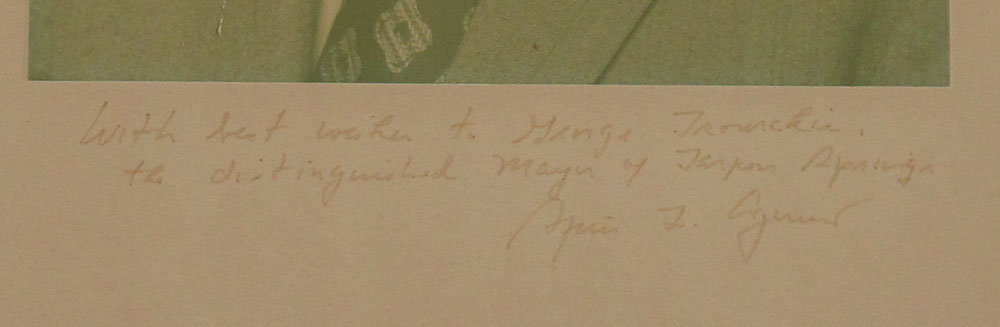 With best wishes to George Tsourakis.
the distinguished Mayor of Tarpon Springs
Spiro T. Agnew